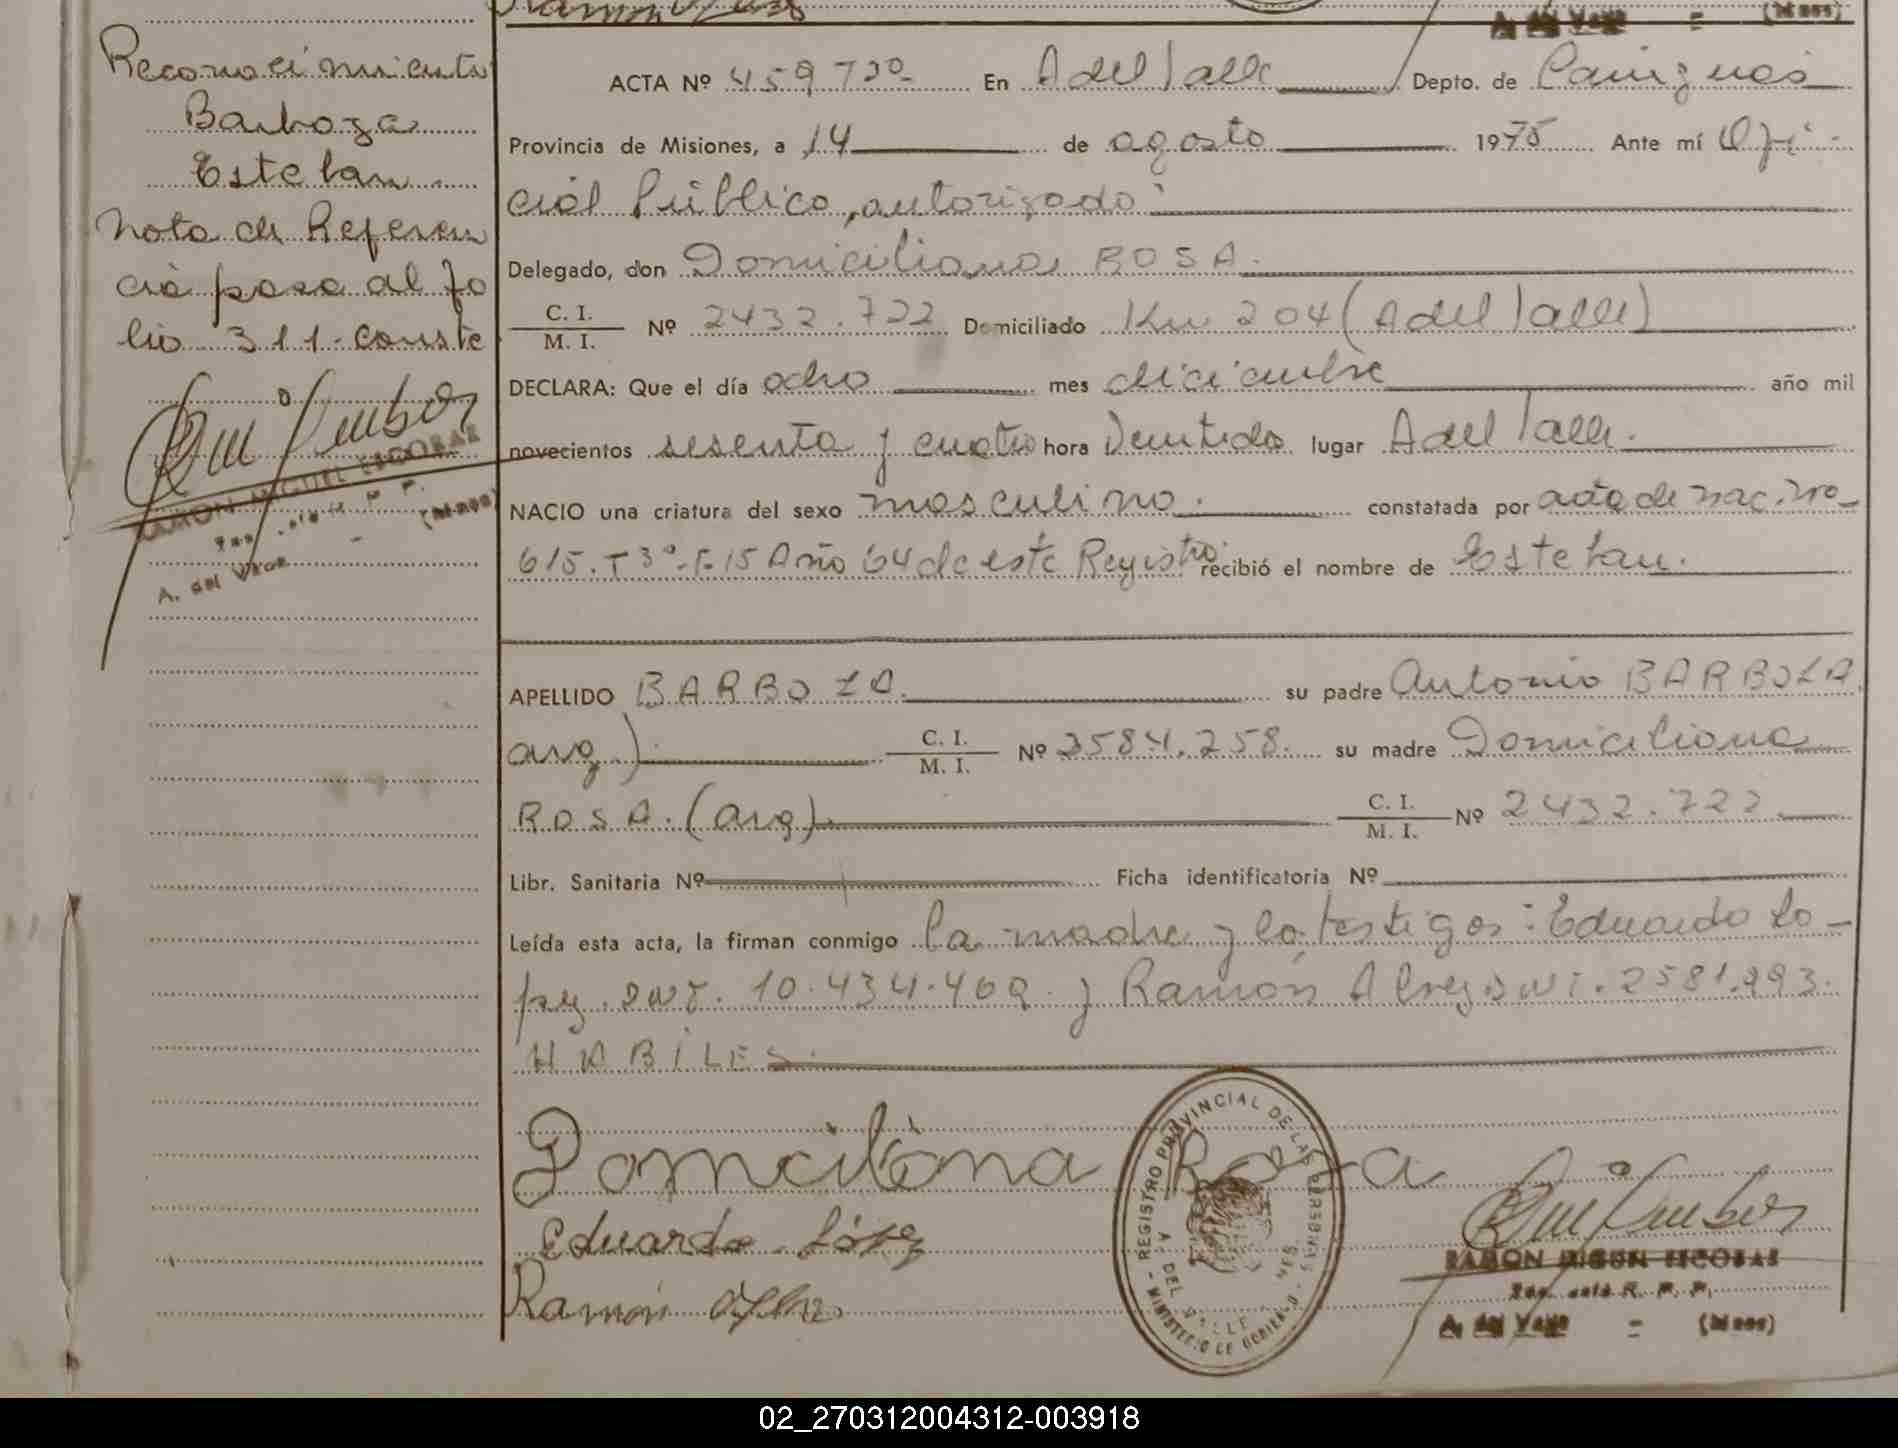 Reconocimiento
Barboza
Esteban.
Nota de Referen
cia pasa al fo
lio 311. conste
RAMON MIGUEL ESCOBAR
A. del Valle (Mnes)
A. del Valle = (Mnes)
ACTA Nº 459 T3º En A del Valle Depto. de Cainguás
Provincia de Misiones, a 14 de agosto 1975 Ante mí Ofi-
cial Público, autorizado
Delegado, don Domiciliana ROSA.
C. I.
M. I. Nº 2432.722 Domiciliado Km 204 (A del Valle)
DECLARA: Que el día ocho mes diciembre año mil
novecientos sesenta y cuatro hora Veintidos lugar A del Valle.
NACIO una criatura del sexo masculino. constatada por acta de nac. nro
615. T3º-F.15 Año 64 de este Registro recibió el nombre de Esteban.
APELLIDO BARBOZA. su padre Antonio BARBOZA
arg.) C. I.
M. I. Nº 2584.258. su madre Domiciliana
ROSA. (arg). C. I.
M. I. Nº 2432.722
Libr. Sanitaria Nº Ficha identificatoria Nº
Leída esta acta, la firman conmigo la madre y los testigos: Eduardo Lo-
pez. DNI. 10.434.469. y Ramón Alvez DNI. 2581.993.
HABILES.
Domciliana Rosa
Eduardo López
Ramón
REGISTRO PROVINCIAL DE LAS PERSONAS - MINISTERIO DE GOBIERNO -
A. DEL VALLE MNES
RAMON MIGUEL ESCOBAR
A. del Valle = (Mnes)
02_270312004312-003918